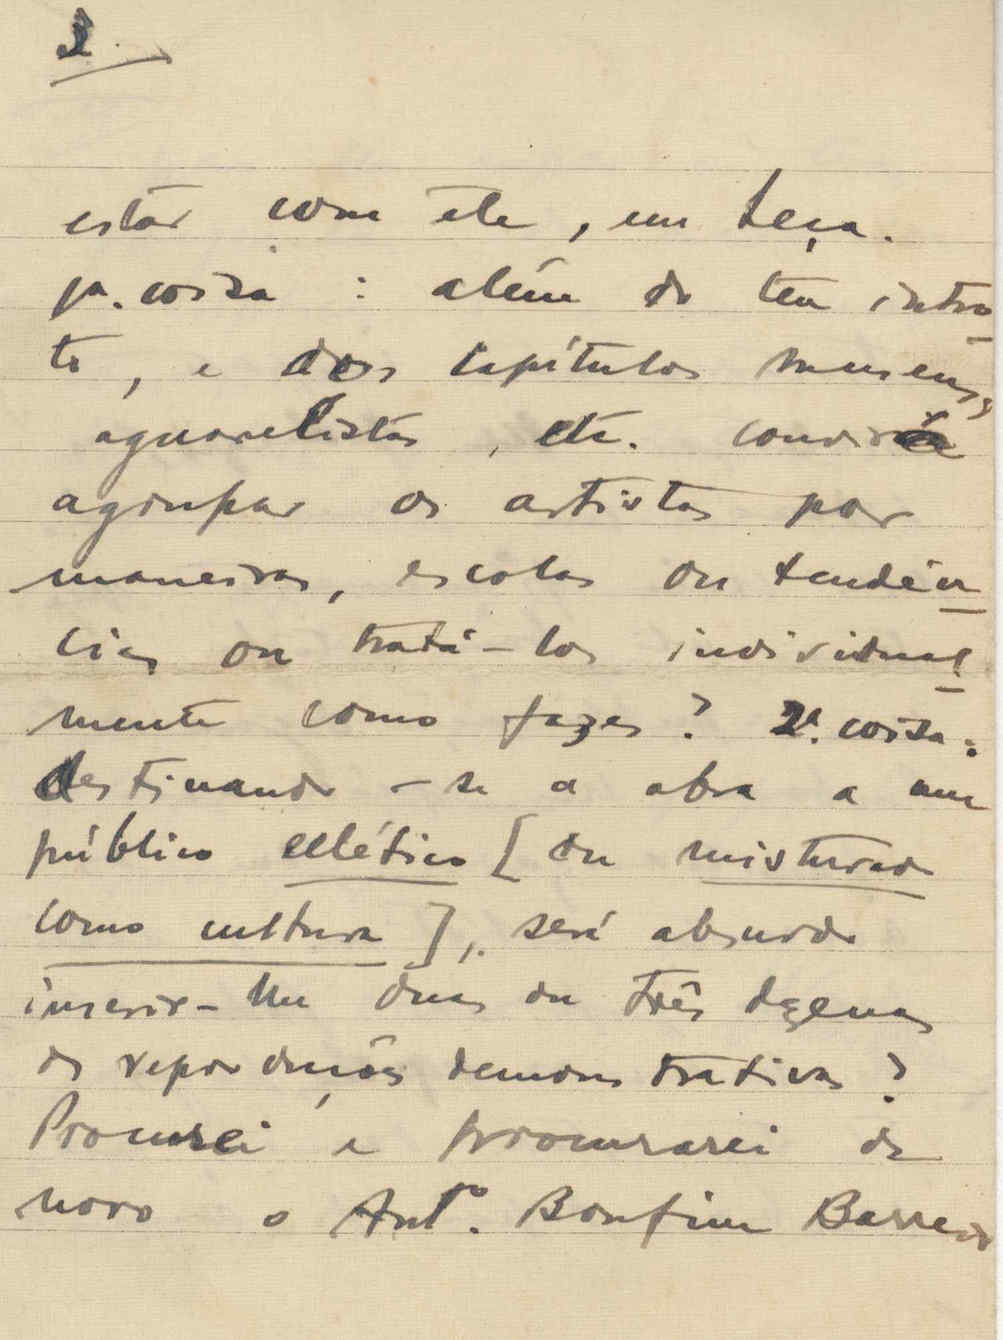 2.
estar com ele, em Leça.
1ª. coisa : além do teu intro
to, e dos capítulos museus,
aguarelistas, etc. convirá
agrupar os artistas por
maneiras, escolas ou tendên
cias ou tratá-los individual
mente como fazes? 2ª. coisa:
destinando-se a obra a um
público eclético [ou misturado
como cultura], será absurdo
inserir-lhe duas ou três dezenas
de reproduções demonstrativas?
Procurei e procurarei de
novo o Antº. Bonfim Barrei